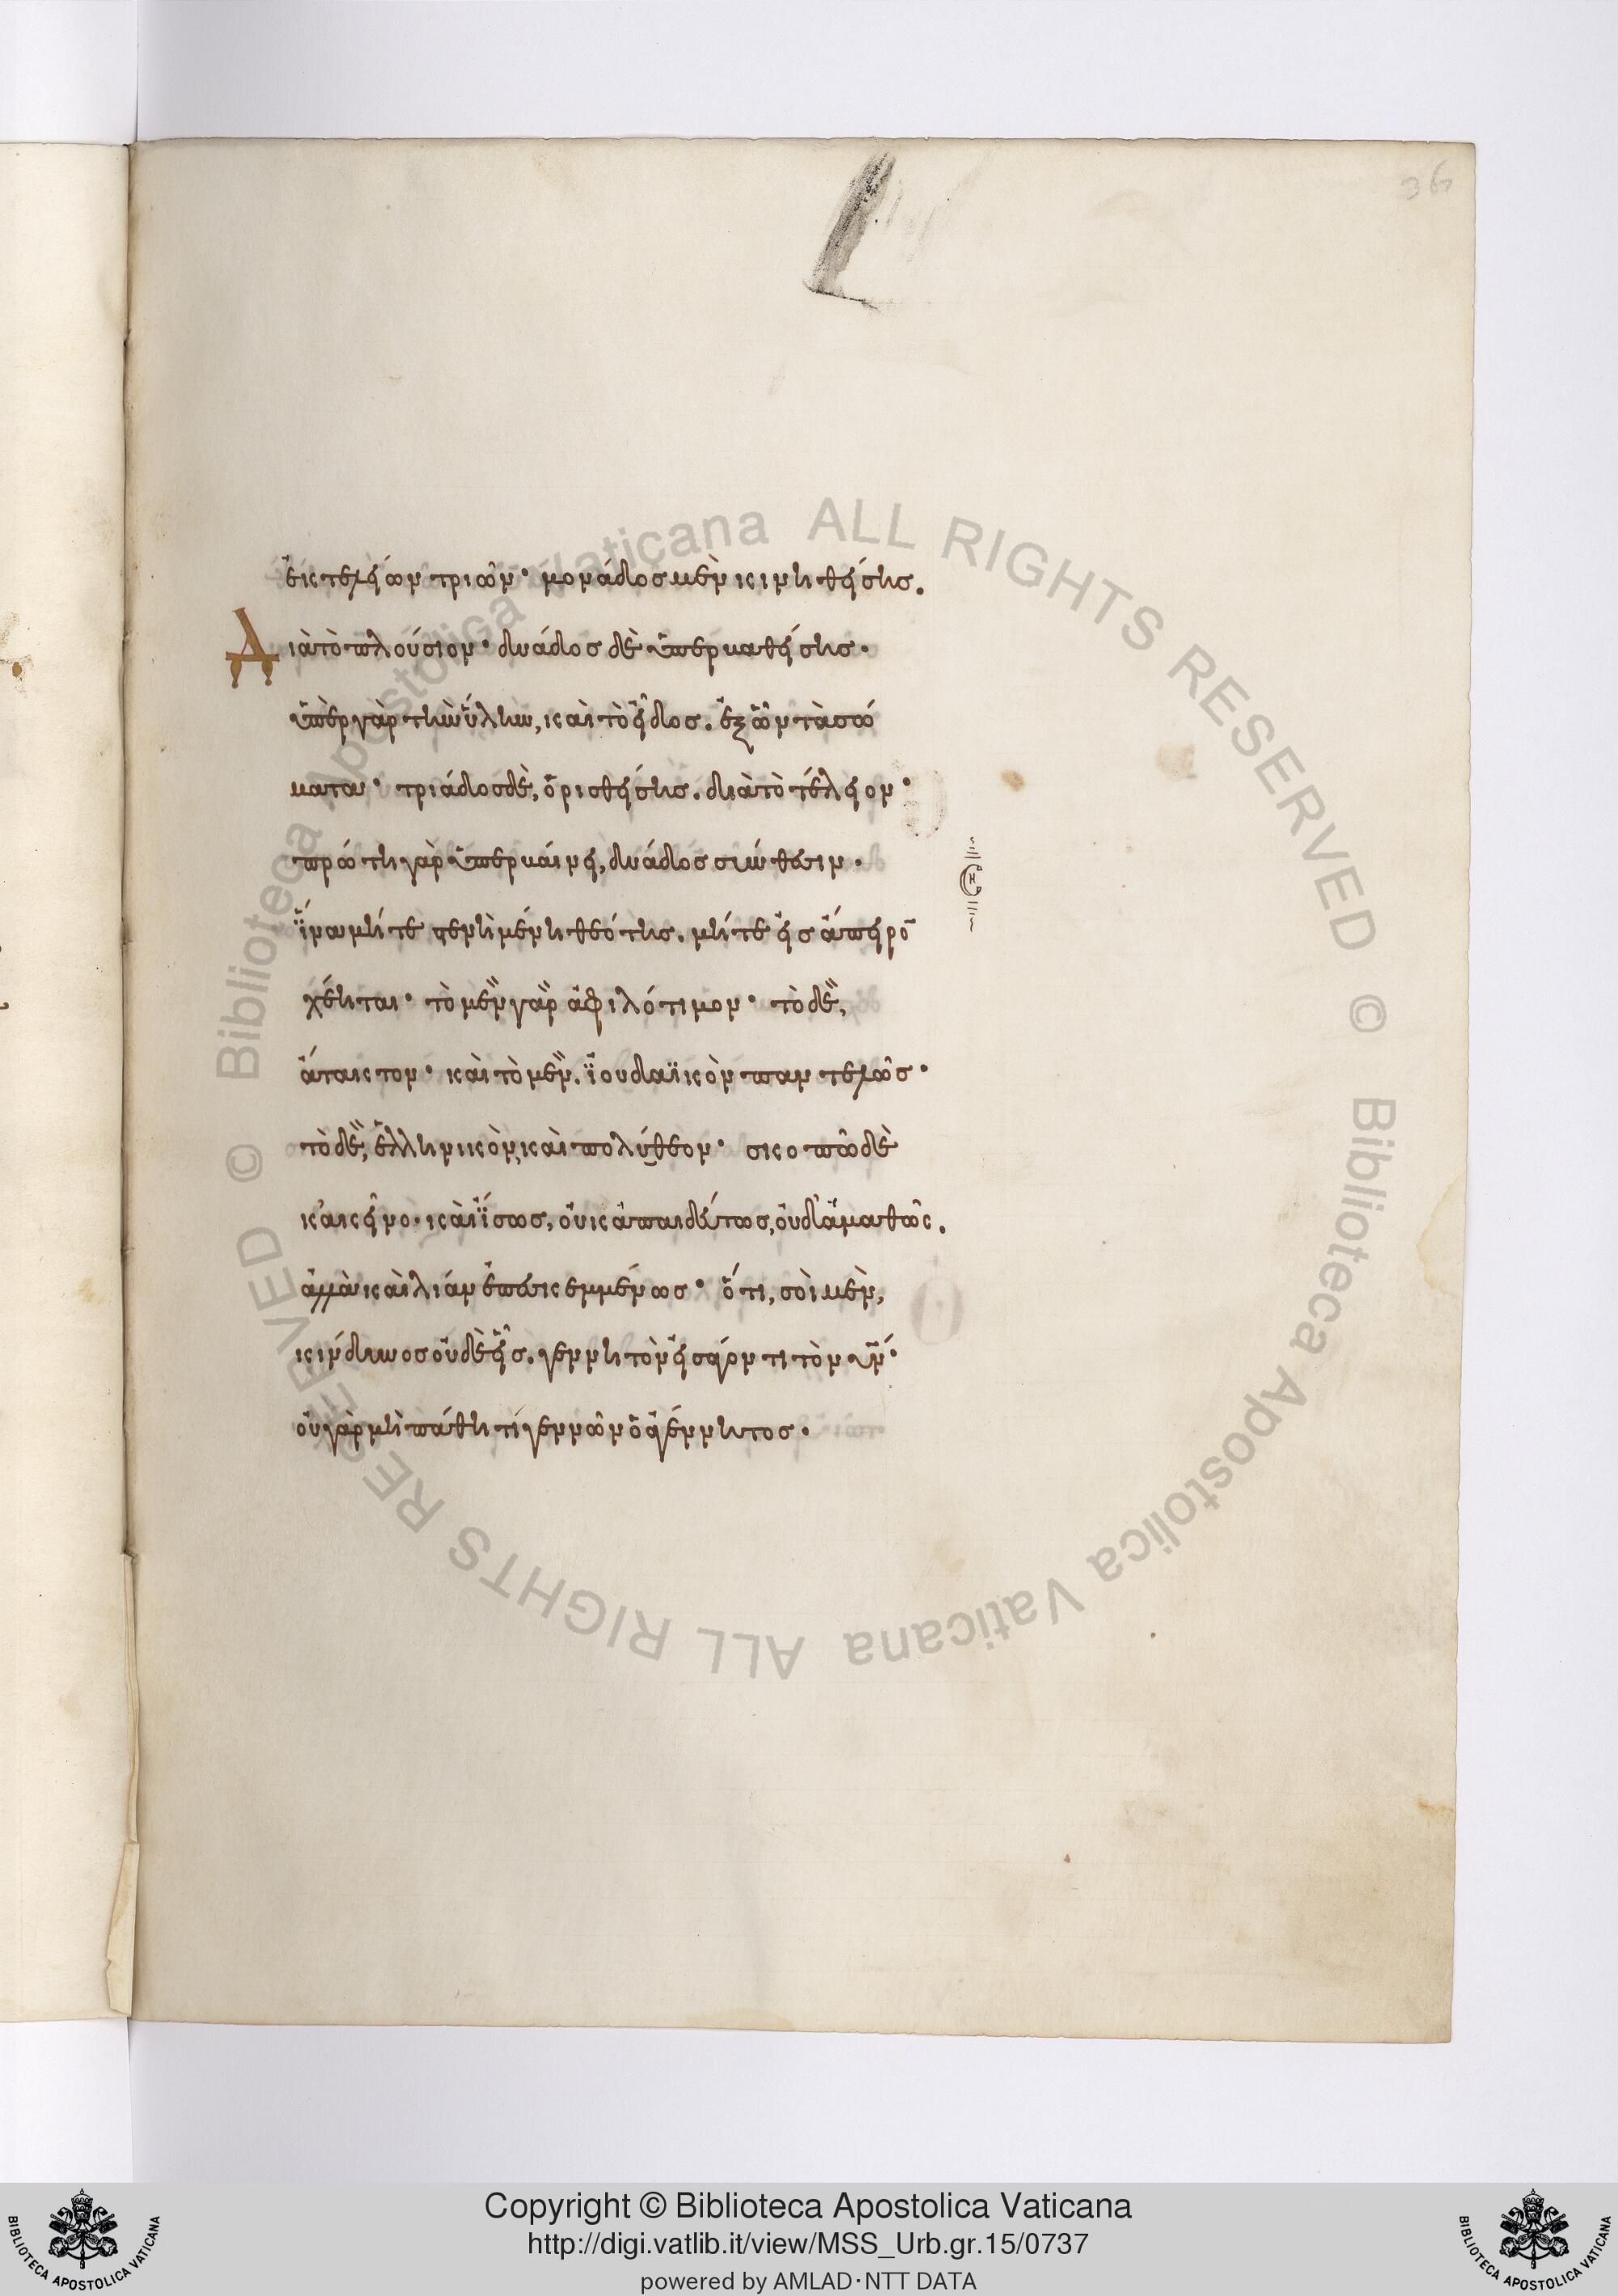 36
ἐκ τελείων τριῶν· μονάδος μὲν κινηθείσης.
Διὰ τὸ πλούσιον· δυάδος δὲ ὑπερβαθείσης·
ὑπὲρ γὰρ τὴν ὕλην, καὶ τὸ εἶδος. ἐξ ὧν τὰ σώ
ματα· τριάδος δὲ, ὁρισθείσης. διὰ τὸ τέλειον·
πρώτη γὰρ ὑπερβαίνει, δυάδος σύνθεσιν·
ἵνα μήτε στενὴ μένη θεότης. μήτε εἰς ἄπειρο̄
χέηται· τὸ μὲν γὰρ ἀφιλότιμον· τὸ δὲ,
ἄτακτον· καὶ τὸ μὲν. ἰουδαϊκὸν παντελῶς·
τὸ δὲ, ἑλληνικὸν, καὶ πολύθεον· σκοπῶ δὲ
κἀκεῖνο· καὶ ἴσως, οὐκ ἀπαιδεύτως, οὐδ' ἀμαθῶς.
ἀλλὰ καὶ λίαν ἐπεσκεμμένως· ὅτι, σοὶ μὲν,
κίνδυνος οὐδεὶς. γεννητὸν εἰσάγοντι τὸν ὑν·
οὐ γὰρ μὴ πάθη τί γεννῶν ὁ ἀγέννητος·
ση
Biblioteca Apostolica Vaticana ALL RIGHTS RESERVED © Biblioteca Apostolica Vaticana ALL RIGHTS RESERVED ©
Copyright © Biblioteca Apostolica Vaticana
http://digi.vatlib.it/view/MSS_Urb.gr.15/0737
powered by AMLAD·NTT DATA
BIBLIOTECA APOSTOLICA VATICANA
BIBLIOTECA APOSTOLICA VATICANA